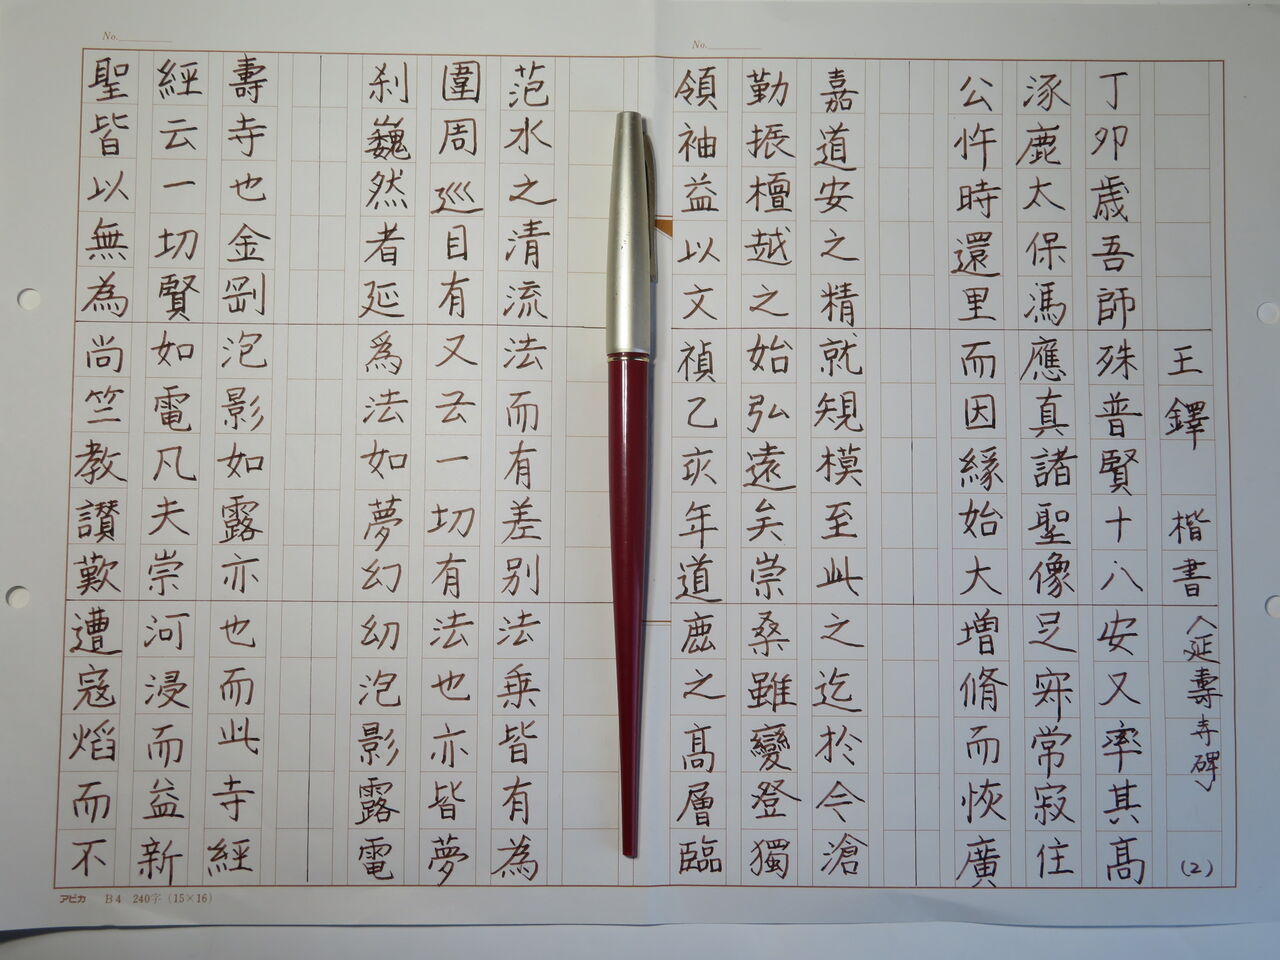 No.
No.
王鐸 楷書 延壽寺碑 (2)
丁卯歳吾師殊普賢十八安又率其高
涿鹿太保馮應真諸聖像足寀常寂住
公忤時還里而因緣始大增脩而恢廣
嘉道安之精就規模至此之迄於今滄
勤振檀越之始弘遠矣崇桑雖變登獨
領袖益以文禎乙亥年道鹿之高層臨
范水之清流法而有差别法乗皆有為
圍周巡目有又云一切有法也亦皆夢
刹巍然者延爲法如夢幻幼泡影露電
壽寺也金剛泡影如露亦也而此寺經
經云一切賢如電凡夫崇河浸而益新
聖皆以無為尚竺教讃歎遭寇熖而不
アピカ B4 240字 (15×16)